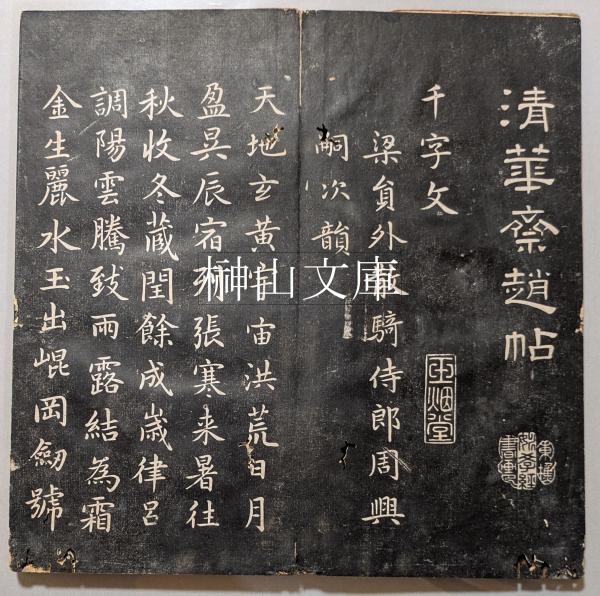 清華斎趙帖
千字文
梁貟外散騎侍郎周興
嗣次韻
玉烟堂
天地玄黃宇宙洪荒日月
盈昃辰宿列張寒来暑往
秋收冬藏閏餘成嵗律吕
調陽雲騰致雨露結為霜
金生麗水玉出崐岡劒號
榊山文庫